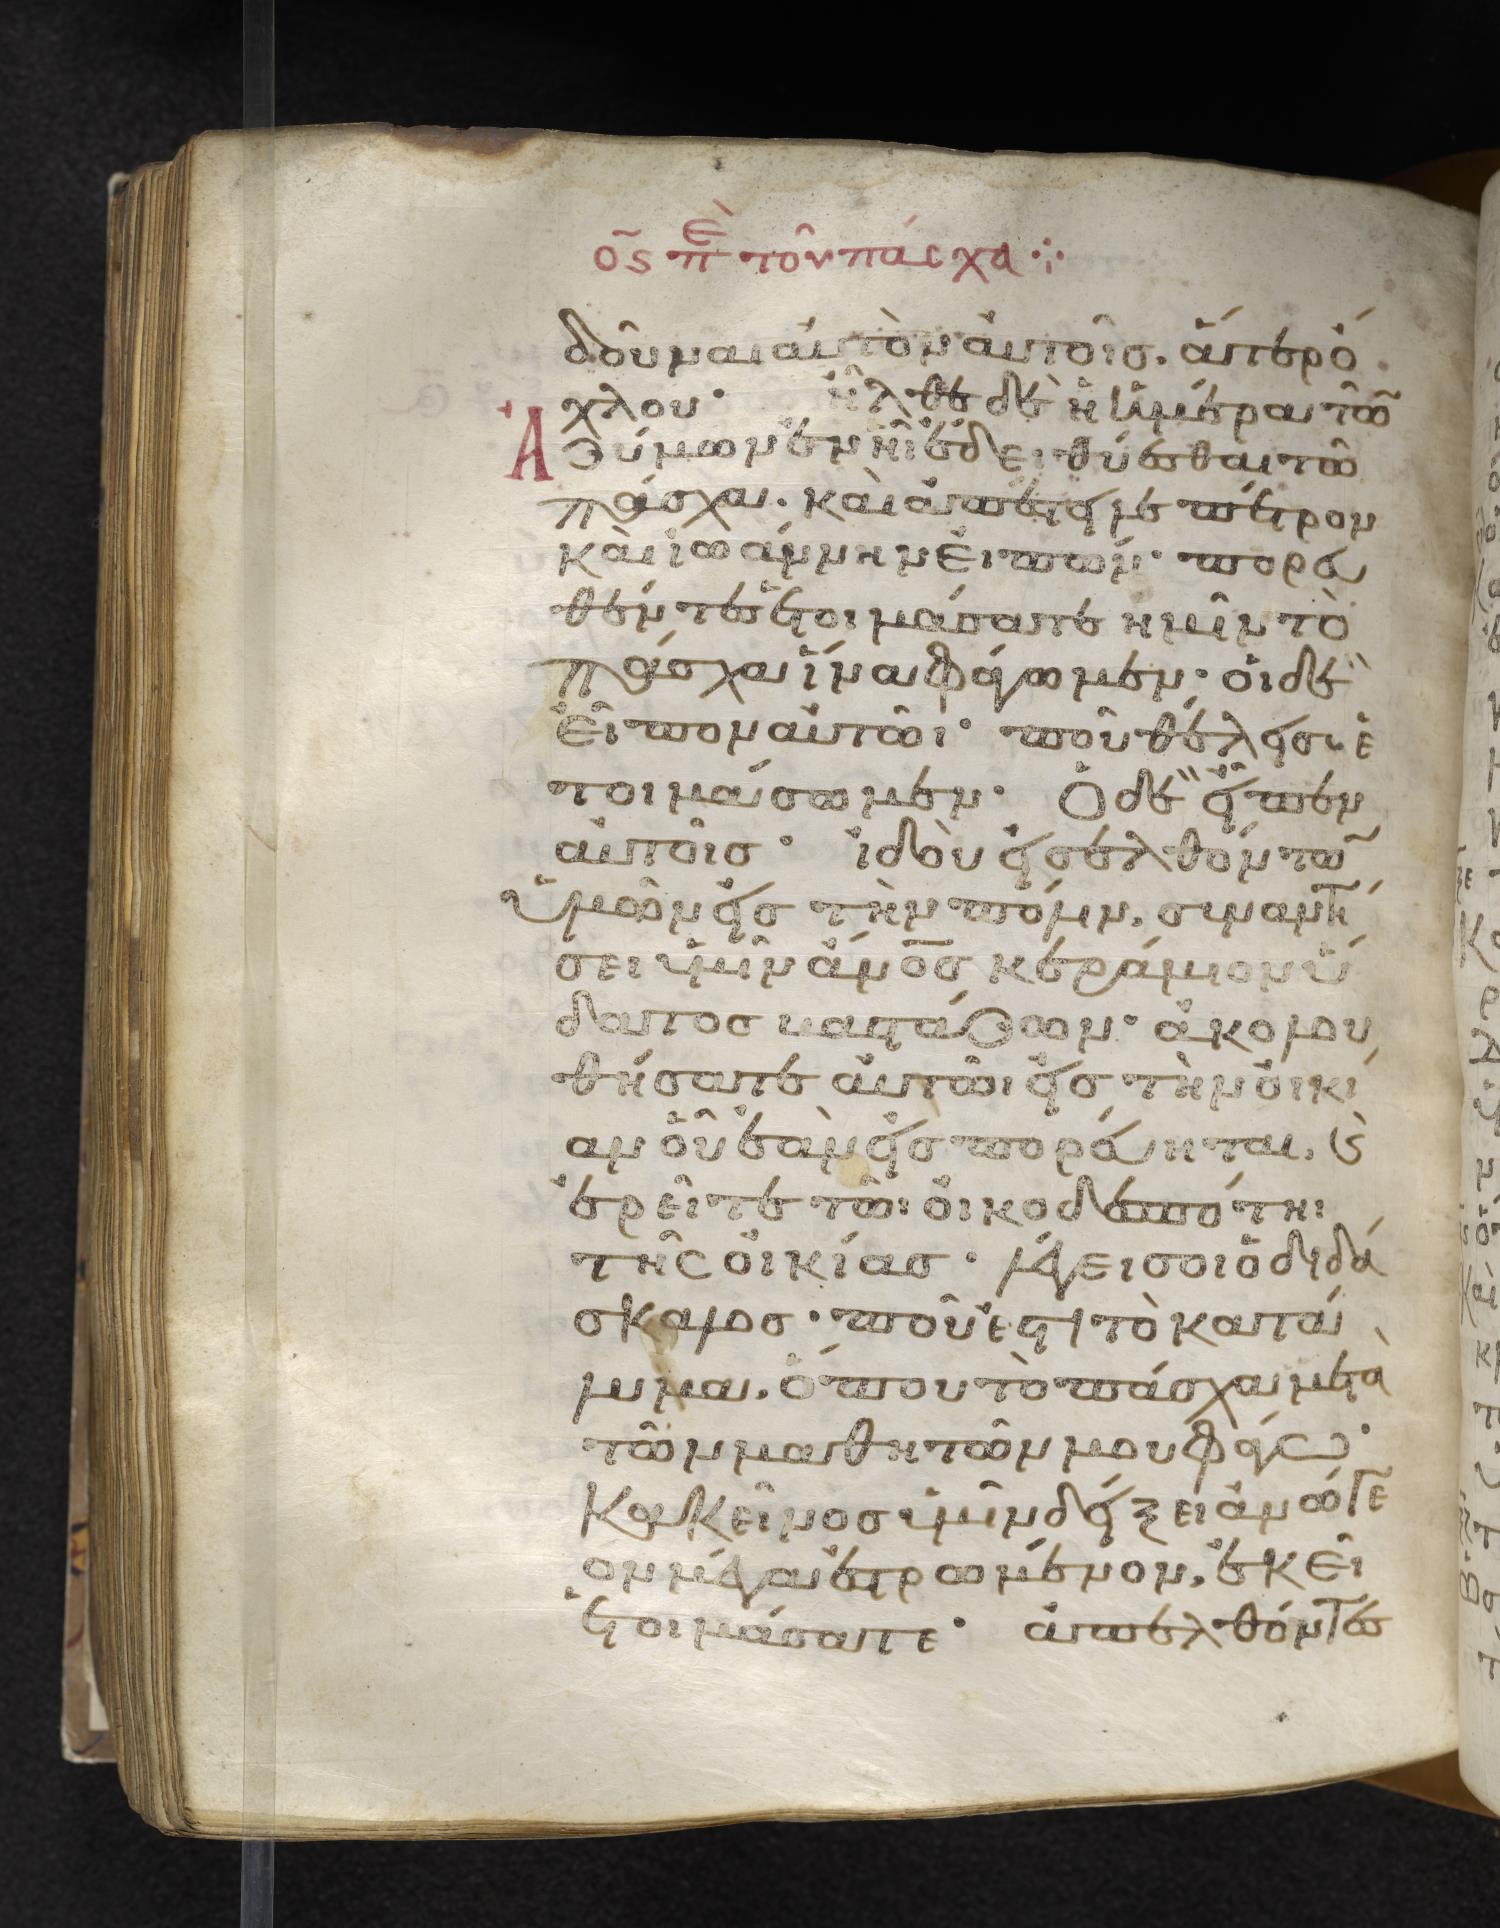 ος π̅ε̅ τοῦ πάσχα ⁘
δοῦναι αὐτὸν αὐτοῖσ. ἄτερ ὄ
χλου· ἦλθε δὲ ἡ ἡμέρα τῶ̅
Ἀζύμων ἐν ἧι ἔδει θύεσθαι τῶ
πάσχα. καὶ ἀπέστειλε πέτρον
καὶ ἰωάννην εἰπών· πορευ
θέντες ἑτοιμάσατε ἡμῖν τὸ
πάσχα ἵνα φάγωμεν· οἱ δὲ
εἶπον αὐτῶι· ποῦ θέλεισ ἑ
τοιμάσωμεν· Ὁ δὲ εἶπεν
αὐτοῖσ· ἰδοὺ εἰσελθόντω̅
ὑμῶν εἰσ τὴν πόλιν. συναντή
σει ὑμῖν ἄνο̅σ κεράμιον ὕ
δατοσ βαστάζων· ἀκολου
θήσατε αὐτῶι εἰσ τὴν οἰκί
αν οὗ ἐὰν εἰσπορεύηται. ϗ
ἐρεῖτε τῶι οἰκοδεσπότηι
τῆς οἰκίασ· λέγει σοι ὁ διδά
σκαλοσ· ποῦ ἐστὶ τὸ κατά
λυμα. ὅπου τὸ πάσχα μετὰ
τῶν μαθητῶν μου φάγω·
Κἀκεῖνοσ ὑμῖν δείξει ἀνώγε
ον μέγα ἐστρωμένον, ἐκεῖ
ἑτοιμάσατε· ἀπελθόντεσ